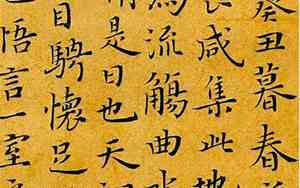 癸丑暮春
長咸集此地
為流觴曲水
情是日也天
目騁懷足
悟言一室